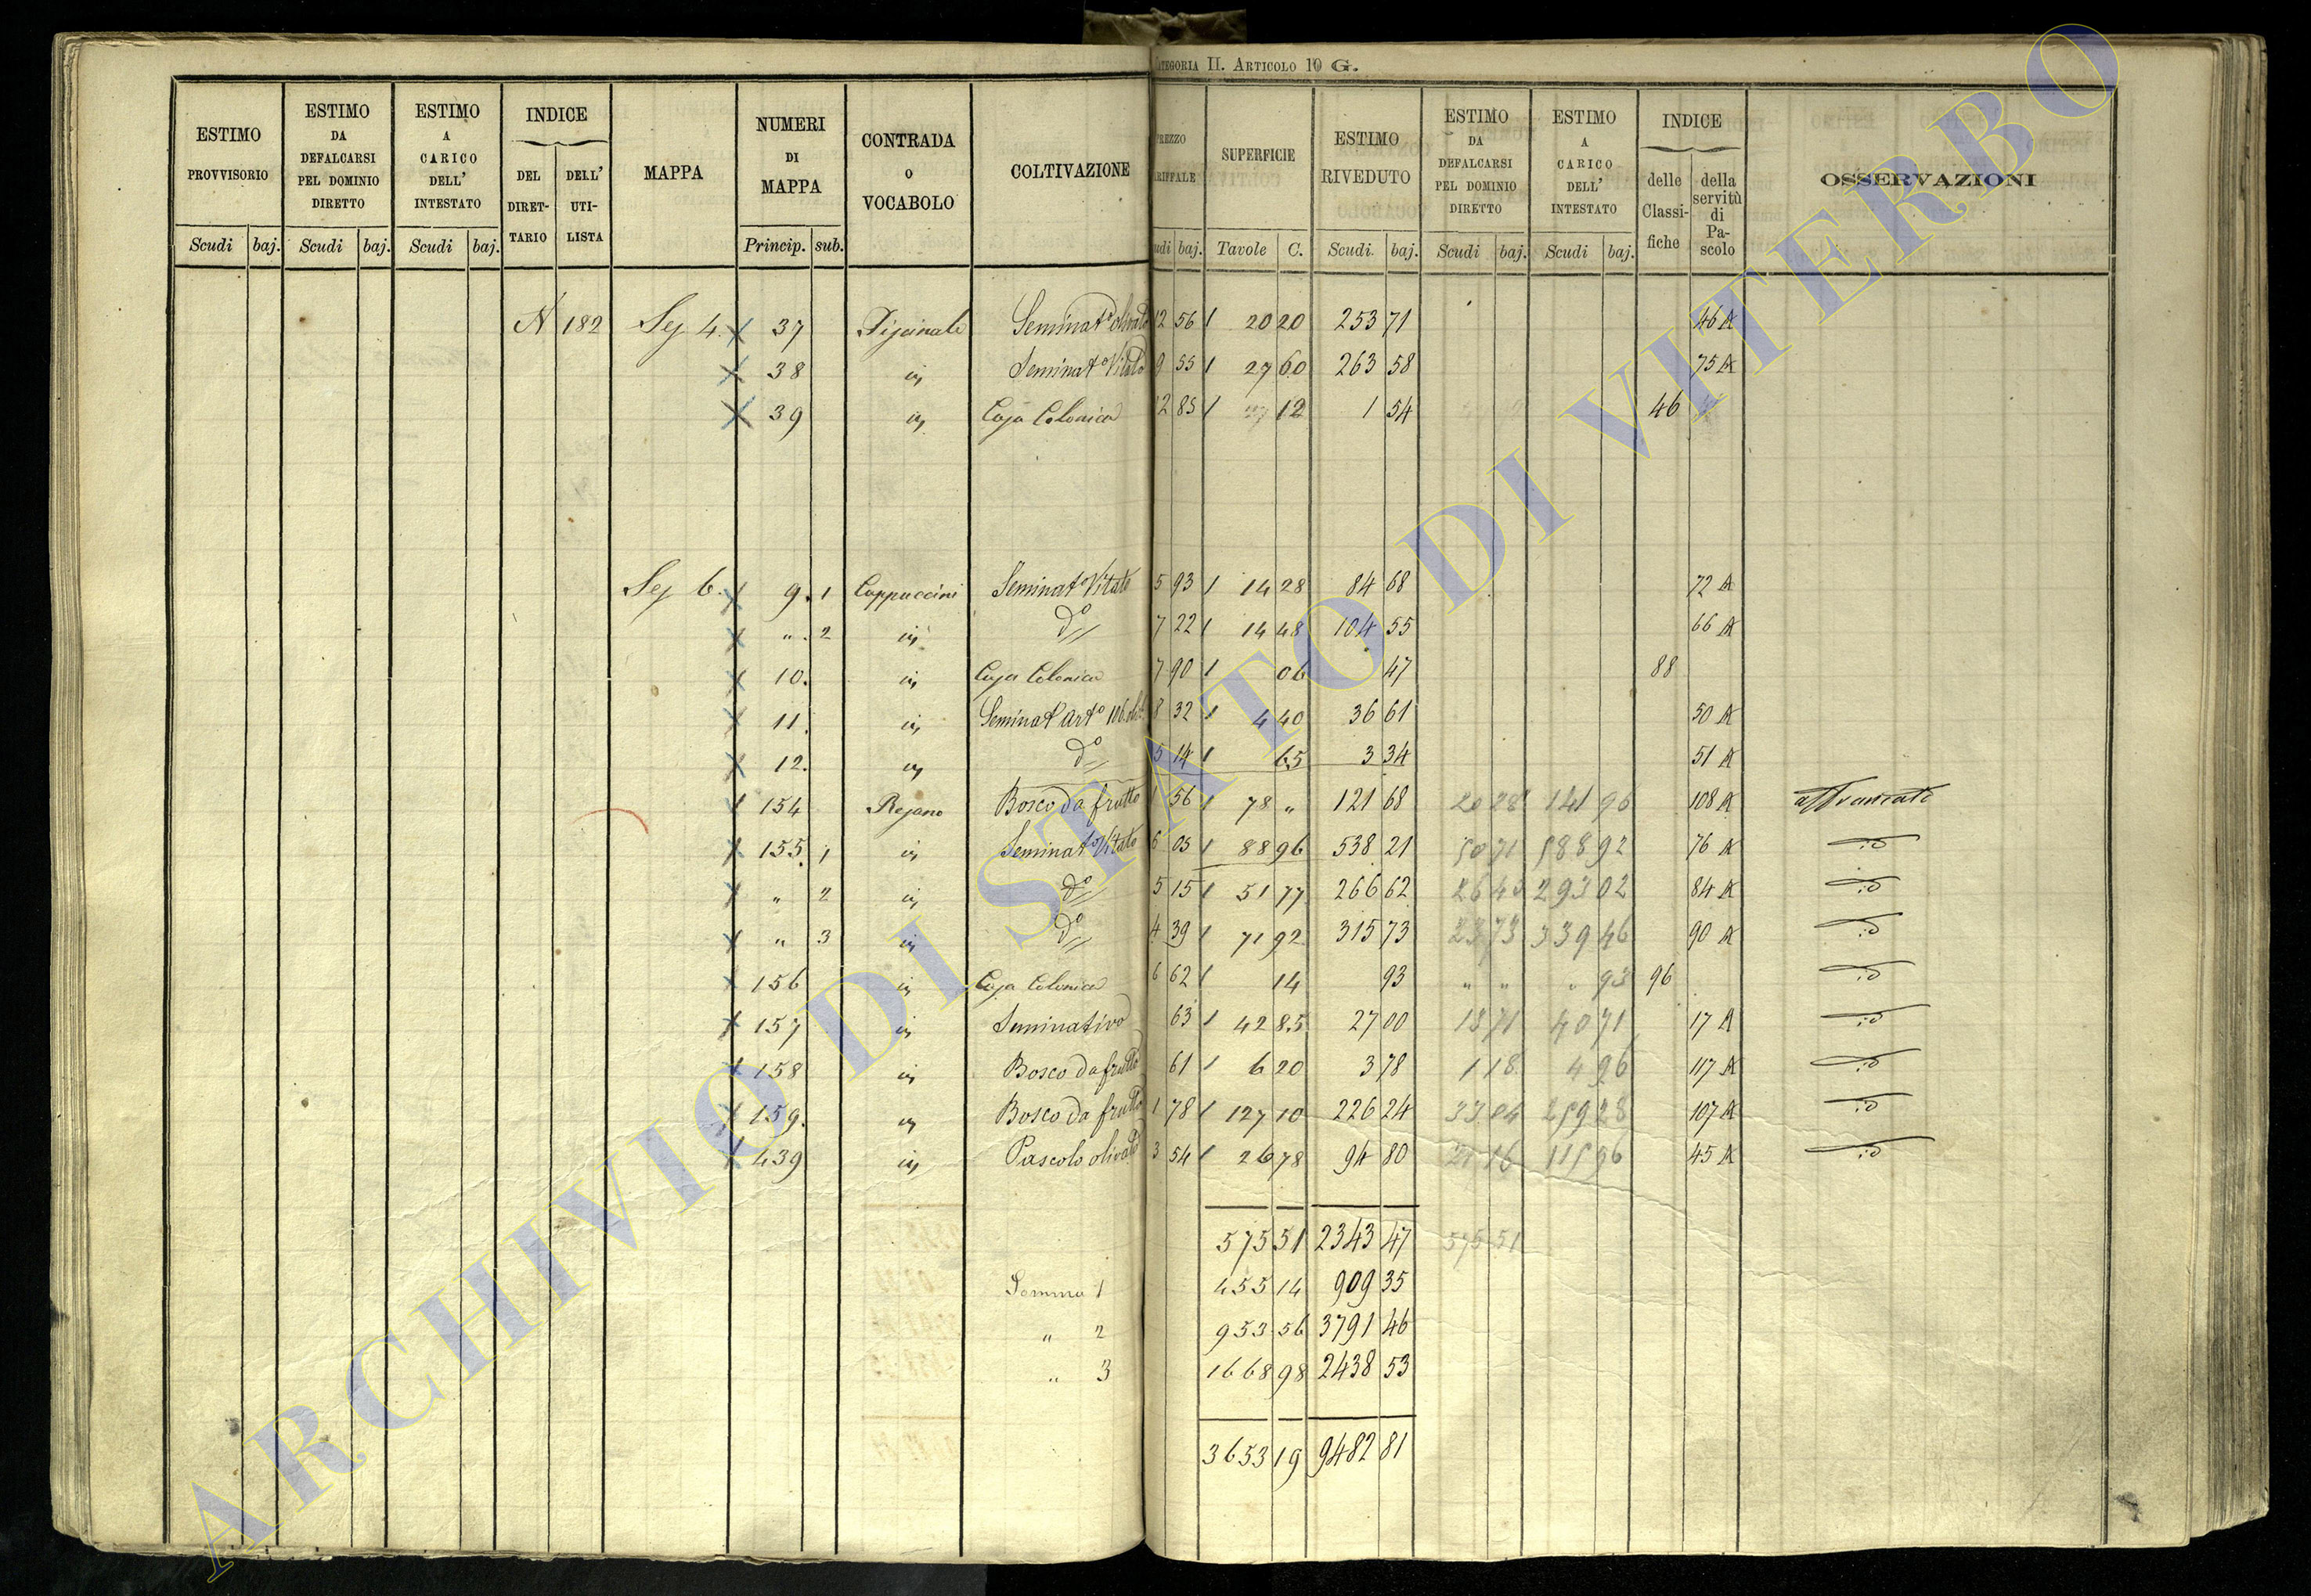 CATEGORIA II. ARTICOLO 10 G.
ESTIMO PROVVISORIO Scudi baj.
ESTIMO DA DEFALCARSI PEL DOMINIO DIRETTO Scudi baj.
ESTIMO A CARICO DELL' INTESTATO Scudi baj.
INDICE DEL DIRET-TARIO DELL' UTI-LISTA
MAPPA
NUMERI DI MAPPA Princip. sub.
CONTRADA o VOCABOLO
COLTIVAZIONE
PREZZO TARIFFALE Scudi baj.
SUPERFICIE Tavole C.
ESTIMO RIVEDUTO Scudi baj.
ESTIMO DA DEFALCARSI PEL DOMINIO DIRETTO Scudi baj.
ESTIMO A CARICO DELL' INTESTATO Scudi baj.
INDICE delle Classi-fiche della servitù di Pa-scolo
OSSERVAZIONI
182 Sez 4. 37 Seminat° olivato 12 56 20 20 253 71 46 A
38 Seminat° Vitato 9 55 27 60 263 58 75 A
39 Casa Colonica 12 85 12 1 54 46
Sez 6. 9. 1 Cappuccini Seminat° Vitato 5 93 14 28 84 68 72 A
" 2 d° 7 22 14 48 104 55 66 A
10. Casa Colonica 7 90 06 47 88
11. Seminat 8 32 4 40 36 61 50 A
12. d° 5 14 65 3 34 51 A
154 Rejano Bosco da frutto 1 56 78 " 121 68 20 28 141 96 108 A affrancato
155. 1 Seminat° Vitato 6 05 88 96 538 21 50 71 588 92 76 A id
" 2 d° 5 15 51 77 266 62 293 02 84 A id
" 3 d° 4 39 71 92 315 73 23 73 339 46 90 A id
156 Casa Colonica 6 62 14 93 " " " 93 96 id
157 Seminativo 63 42 85 27 00 13 71 40 71 17 A id
158 Bosco da frutto 61 6 20 3 78 1 18 4 96 117 A id
159. Bosco da frutto 1 78 127 10 226 24 33 04 259 28 107 A id
439 Pascolo olivato 3 54 26 78 94 80 21 16 115 96 45 A id
575 51 2343 47 575 51
Somma 1 455 14 909 35
" 2 953 56 3791 46
" 3 1668 98 2438 53
3653 19 9482 81
ARCHIVIO DI STATO DI VITERBO